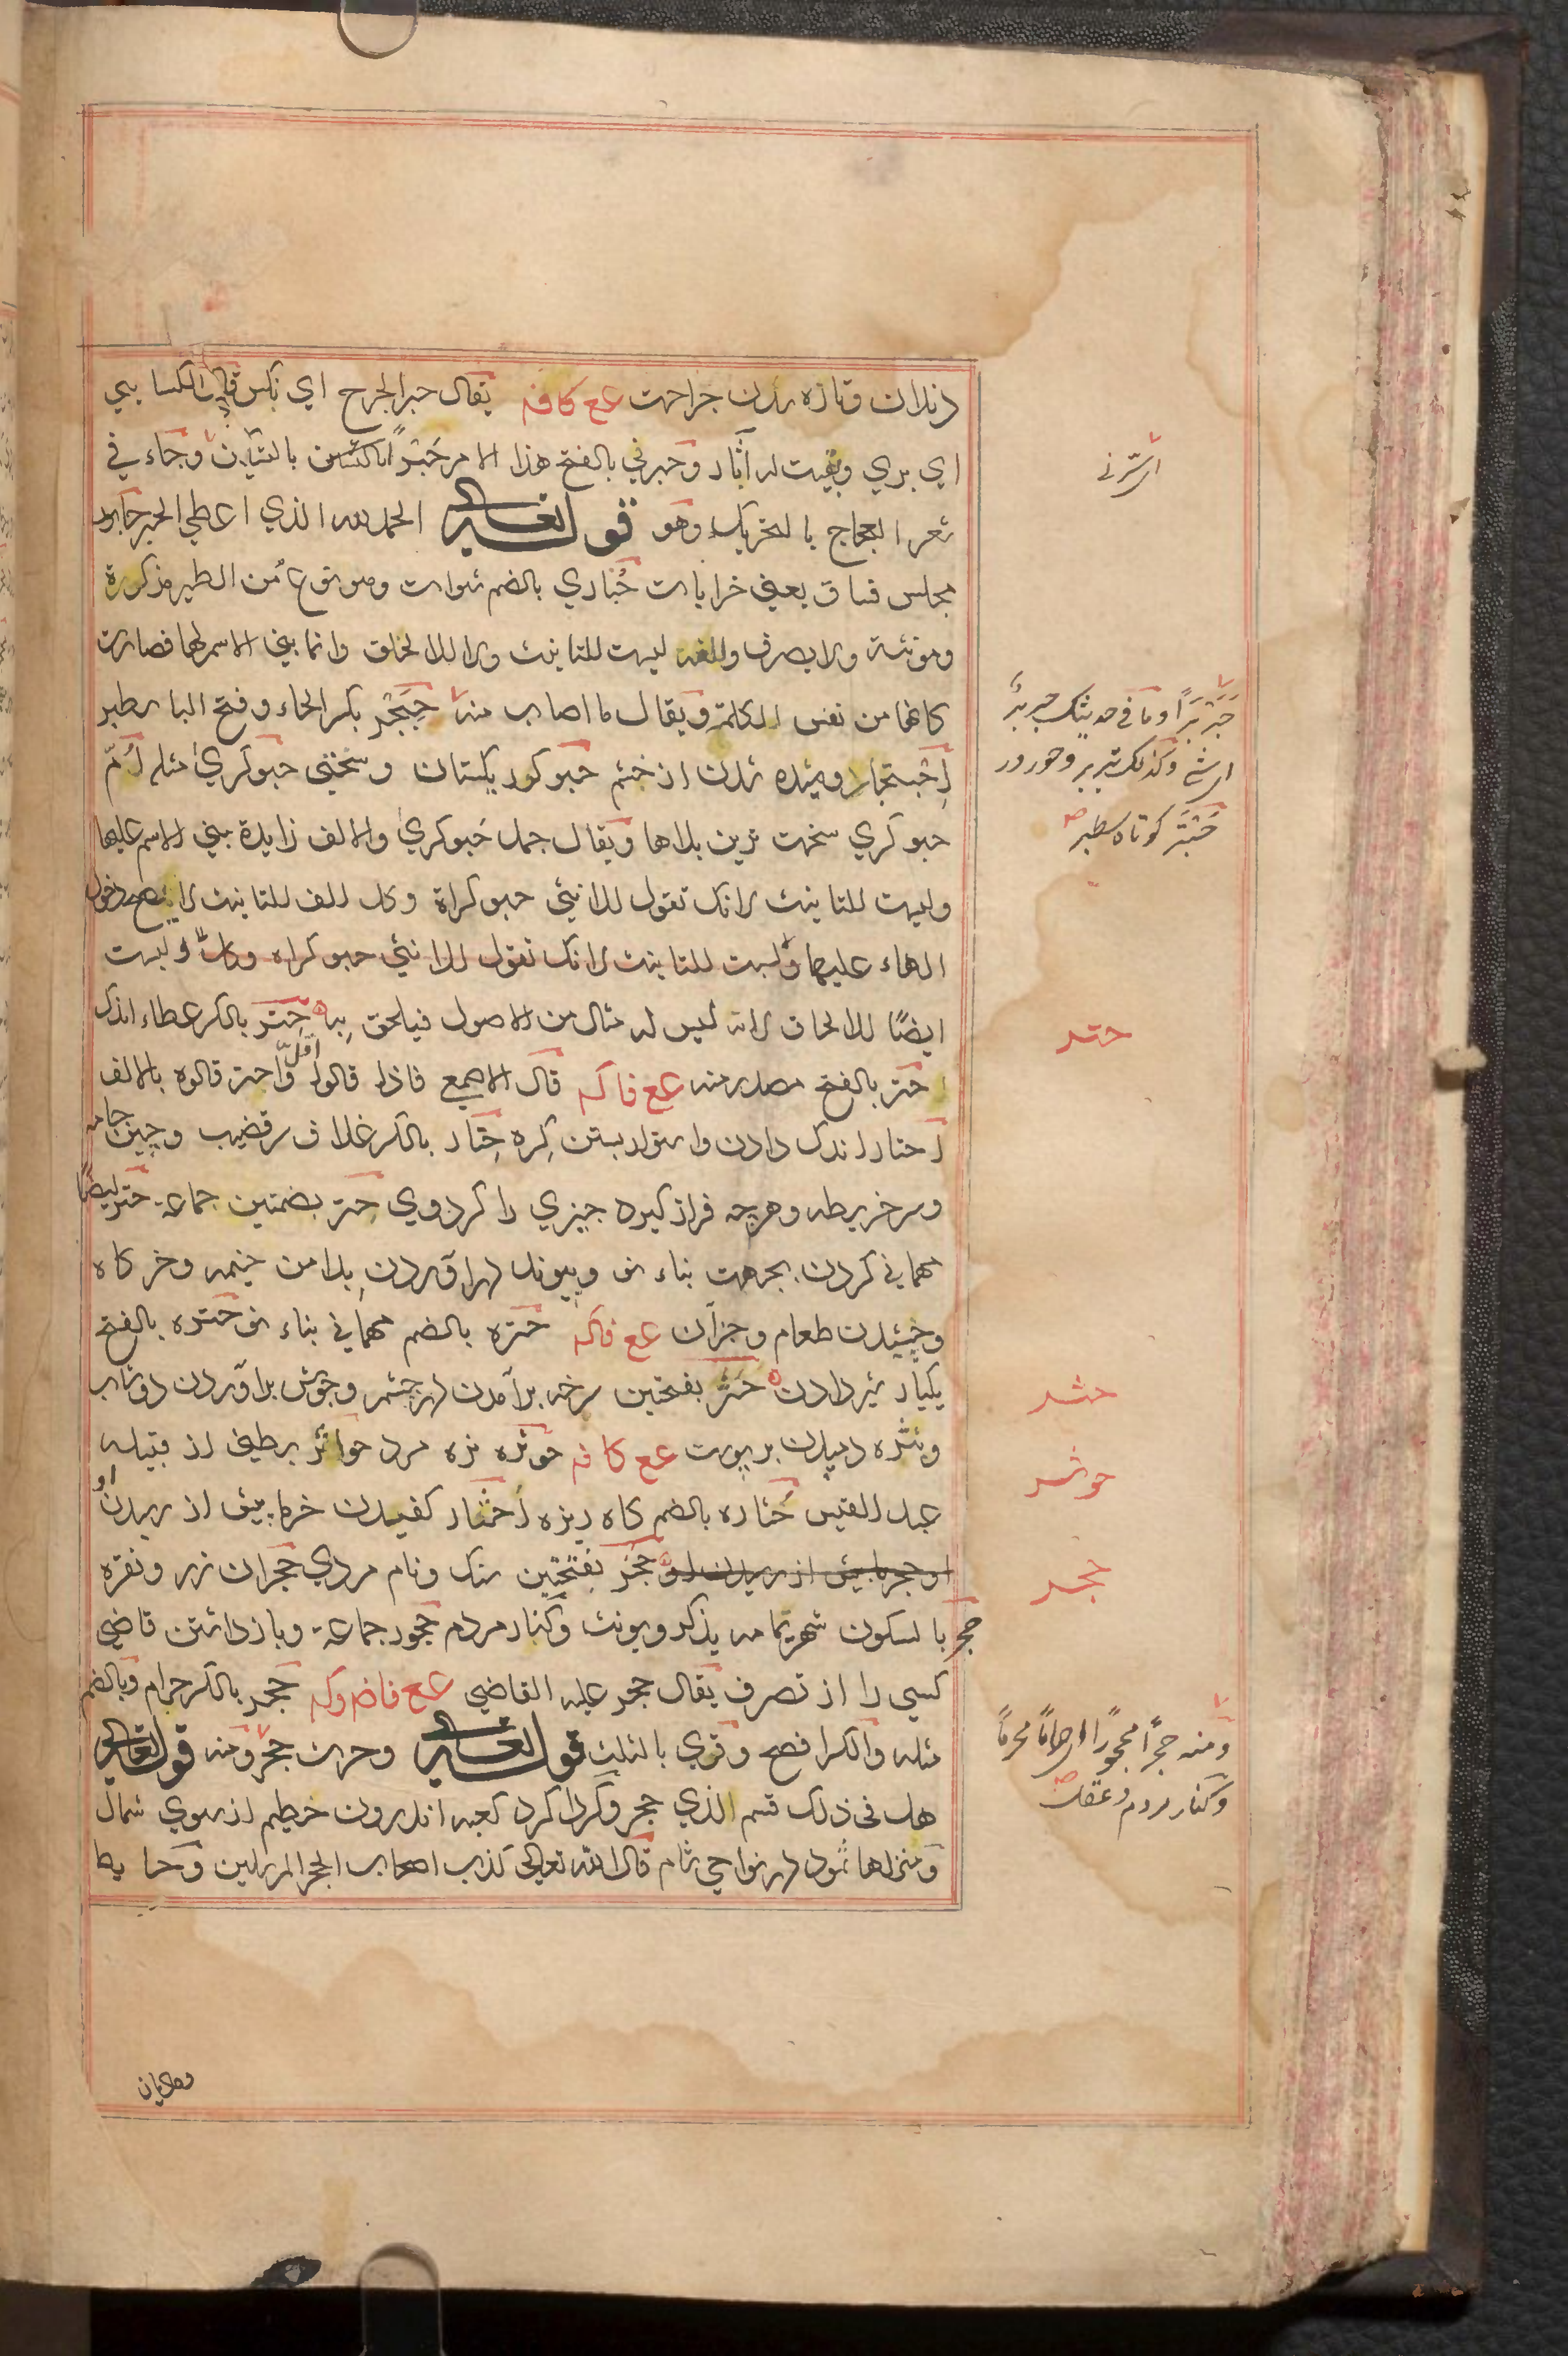 دندان وتازه شدن جراحت عع كافة يقال حبر الجرح اي نكس قال الكسايي
اي بري وبقيت له آثار وحبرني بالفتح هذا الامر حَبْرًا بالتسكين وجاء في
شعر العجاج بالتحريك وهو الحمد لله الذي اعطي الحبر حابور
مجلس فساق يعني خرابات حُبَاري بالضم شوات وهو نوع من الطير مذكورة
ومونثة ولا يصرف والفه ليست للتانيث ولا للالحاق وانما بني الاسم لها فصارت
كانها من نفس الكلمة ويقال ما اصاب منه حِبَجْر بكسر الحاء وفتح الباء سطبر
اِحْبِنْجار دميده شدن از خشم حبوكر ريكستان وسختي حبوكري مثله اُمّ
حبوكري سخت ترين بلاها ويقال جمل حَبوكري والالف زايدة بني الاسم عليها
وليست للتانيث لانك تقول للانثي حبوكراة وكل الف للتانيث لا يصح دخول
الهاء عليها وليست للتانيث لانك تقول للانثي حبوكراه وليست
ايضًا للالحاق لانه ليس له مثال من الاصول فيلحق به حِتر بالكسر عطاء اندك
حَتر بالفتح مصدر منه عع فاكه قال الاصمعي فاذا قالوا اقل واحتر قالوه بالالف
اِحتار اندك دادن واستوار بستن كره حِتار بالكسر غلاف سر قضيب وچين جامه
وسر خريطه وهرچه فراز كيرد چيزي را كرد وي حتر بضمتين جماعة حتر ايضًا
مهماني كردن بجهت بناء نو وپيوند در آوردن بدامن خيمه وخركاه
وچشيدن طعام وجز آن عع فاكه حتره بالضم مهماني بناء نو حتره بالفتح
يكبار شير دادن حَثَر بفتحتين سرخه برآمدن در چشم وجوش برآوردن دوشاب
وبثره دميدن بر پوست عع كافه حوثره نره مرد حواثر بطني از قبيله
عبد القيس حُثاره بالضم كاه ريزه اِحثار كفيدن خرما پيش از رسيدن او
حَجَر بفتحتين سنك ونام مردي حجران زر ونقره
حجر بالسكون شهر يمامه يذكر ويونث وكنار مردم حجور جماعة وبازداشتن قاضي
كسي را از تصرف يقال حجر عليه القاضي عع فاضوكه حجر بالكسر حرام وبالضم
مثله والكسر افصح وقري بالثلث قوله تعالي وحرث حجر ومنه قوله تعالي
هل في ذلك قسم لذي حجر وكرداكرد كعبه اندرون حطيم از سوي شمال
ومنزلها ثمود در نواحي شام قال الله تعالي كذب اصحاب الحجر المرسلين وحايط
حَبَرْبَرًا وما في حديثك حبربر
حَبْتَر كوتاه سطبر
حتر
حثر
حوثر
حجر
ومنه حجرًا محجورًا اي حرامًا محرمًا
وكنار مردم وعقل
وماديان